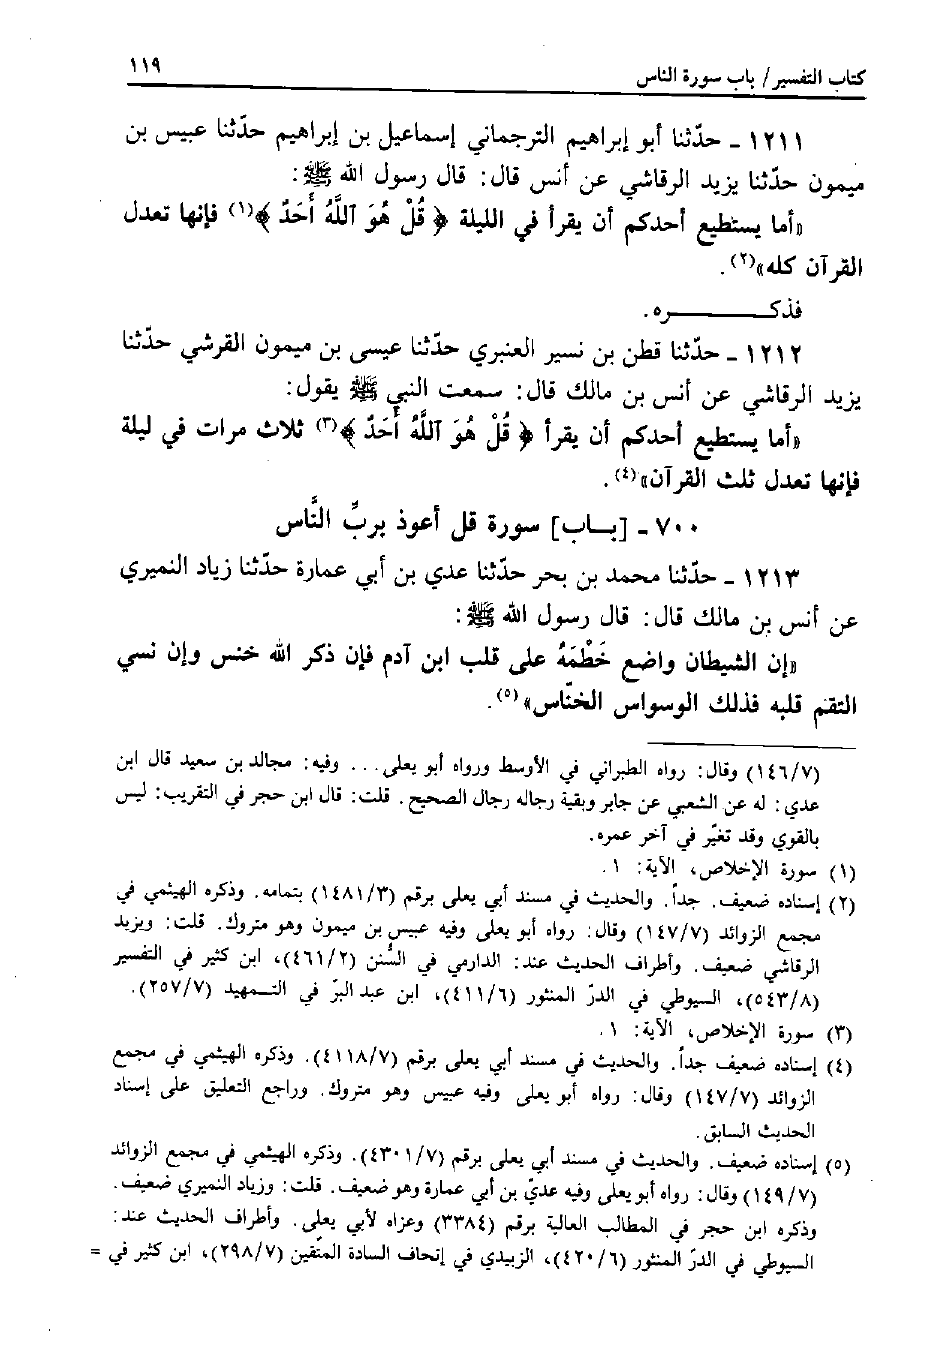 كتاب التفسير / باب سورة الناس ١١٩
١٢١١ - حدّثنا أبو إبراهيم الترجماني إسماعيل بن إبراهيم حدّثنا عبيس بن
ميمون حدّثنا يزيد الرقاشي عن أنس قال: قال رسول الله ﷺ:
«أما يستطيع أحدكم أن يقرأ في الليلة ﴿ قُلْ هُوَ ٱللَّهُ أَحَدٌ ﴾(١) فإنها تعدل
القرآن كله»(٢).
فذكـــــــره.
١٢١٢ - حدّثنا قطن بن نسير العنبري حدّثنا عيسى بن ميمون القرشي حدّثنا
يزيد الرقاشي عن أنس بن مالك قال: سمعت النبي ﷺ يقول:
«أما يستطيع أحدكم أن يقرأ ﴿ قُلْ هُوَ ٱللَّهُ أَحَدٌ ﴾(٣) ثلاث مرات في ليلة
فإنها تعدل ثلث القرآن»(٤).
٧٠٠ - [بـاب] سورة قل أعوذ بربِّ النَّاس
١٢١٣ - حدّثنا محمد بن بحر حدّثنا عدي بن أبي عمارة حدّثنا زياد النميري
عن أنس بن مالك قال: قال رسول الله ﷺ:
«إن الشيطان واضع خَطْمَهُ على قلب ابن آدم فإن ذكر الله خنس وإن نسي
التقم قلبه فذلك الوسواس الخنّاس»(٥).
(١٤٦/٧) وقال: رواه الطبراني في الأوسط ورواه أبو يعلى... وفيه: مجالد بن سعيد قال ابن
عدي: له عن الشعبي عن جابر وبقية رجاله رجال الصحيح. قلت: قال ابن حجر في التقريب: ليس
بالقوي وقد تغيّر في آخر عمره.
(١) سورة الإخلاص، الآية: ١.
(٢) إسناده ضعيف. جداً. والحديث في مسند أبي يعلى برقم (١٤٨١/٣) بتمامه. وذكره الهيثمي في
مجمع الزوائد (١٤٧/٧) وقال: رواه أبو يعلى وفيه عبيس بن ميمون وهو متروك. قلت: ويزيد
الرقاشي ضعيف. وأطراف الحديث عند: الدارمي في السُّنن (٤٦١/٢)، ابن كثير في التفسير
(٥٤٣/٨)، السيوطي في الدرّ المنثور (٤١١/٦)، ابن عبد البرّ في التـمهيد (٢٥٧/٧).
(٣) سورة الإخلاص، الآية: ١.
(٤) إسناده ضعيف جداً. والحديث في مسند أبي يعلى برقم (٤١١٨/٧). وذكره الهيثمي في مجمع
الزوائد (١٤٧/٧) وقال: رواه أبو يعلى وفيه عبيس وهو متروك. وراجع التعليق على إسناد
الحديث السابق.
(٥) إسناده ضعيف. والحديث في مسند أبي يعلى برقم (٤٣٠١/٧). وذكره الهيثمي في مجمع الزوائد
(١٤٩/٧) وقال: رواه أبو يعلى وفيه عديّ بن أبي عمارة وهو ضعيف. قلت: وزياد النميري ضعيف.
وذكره ابن حجر في المطالب العالية برقم (٣٣٨٤) وعزاه لأبي يعلى. وأطراف الحديث عند:
السيوطي في الدرّ المنثور (٤٢٠/٦)، الزبيدي في إتحاف السادة المتّقين (٢٩٨/٧)، ابن كثير في =